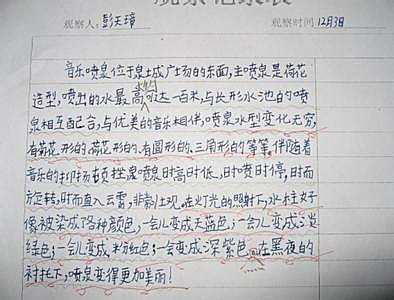 观察记录表
观察人：彭天璋 观察时间 12月3日
音乐喷泉位于泉城广场的东面，主喷泉是荷花
造型，喷出的水最高约可达一百米，与长形水池的喷
泉相互配合，与优美的音乐相伴，喷泉水型变化无穷，
有菊花形的、荷花形的、有圆形的、三角形的等等。伴随着
音乐的抑扬顿挫喷泉时高时低，时喷时停，时而
旋转，时而直入云霄，非常壮观。在灯光的照射下，水柱好
像被染成各种颜色，一会儿变成天蓝色；一会儿变成淡
绿色；一会儿变成粉红色；一会变成深紫色。在黑夜的
衬托下，喷泉变得更加美丽！